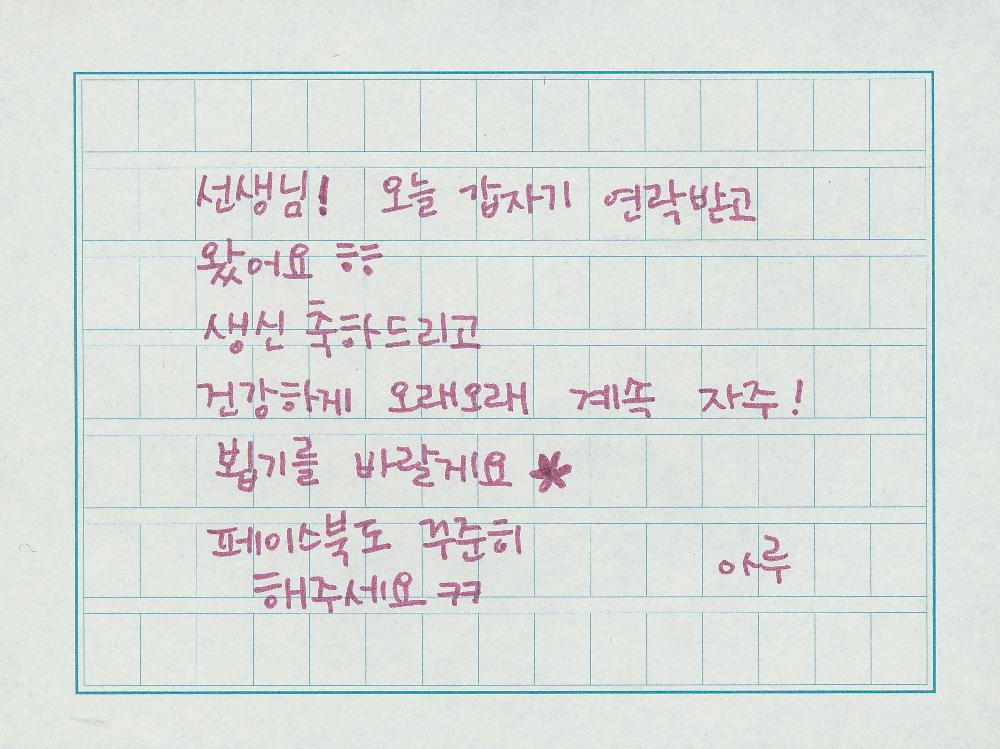 선생님! 오늘 갑자기 연락받고
왔어요 ㅎㅎ
생신 축하드리고
건강하게 오래오래 계속 자주!
뵙기를 바랄게요 *
페이스북도 꾸준히
해주세요 ㅋㅋ
아루